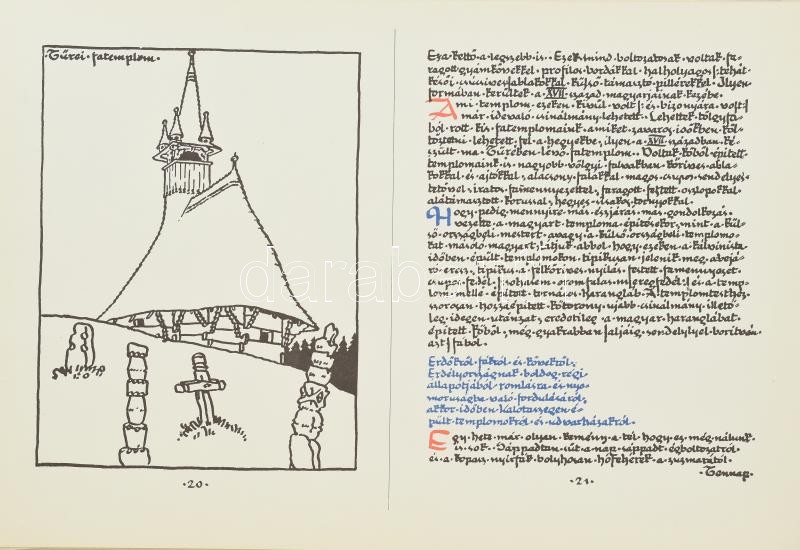 ·Türei·fatemplom·
·20·
Eza·kettő·a·legszebb·is·Ezek·mind·boltozatosak·voltak·fa-
ragott·gyámkövekkel·profilos·bordákkal·halholyagos·tehát·
késői·csúcsíves·ablakokkal·külső·támasztó·pillérekkel·Ilyen·
formában·kerültek·a·XVII·század·magyarjainak·kezébe·
Ami·templom·ezeken·kívül·volt·és·bizonyára·volt·
már·idevaló·csinálmány·lehetett·Lehettek·tölgyfá-
ból·rótt·kis·fatemplomaink·amiket·zavaros·időkben·köl-
töztetni·lehetett·fel·a·hegyekbe·ilyen·a·XVII·században·ké-
szült·ma·Türében·lévő·fatemplom··Voltak·kőből·épített·
templomaink·is·nagyobb·völgyi·falvakban·köríves·abla-
kokkal·és·ajtókkal·alacsony·falakkal·magos·csupa·sendelyes·
tetővel·iratos·színmennyezettel·faragott·festett·oszlopokkal·
alátámasztott·kórussal·hegyes·sisakos·tornyokkal·
Hogy·pedig·mennyire·más·észjárás·más·gondolkozás·
vezette·a·magyart·temploma·építésekor·mint·a·kül-
ső·országbéli·mestert·avagy·a·külső·országbéli·templomo-
kat·másoló·magyart·látjuk·abból·hogy·ezeken·a·kálvinista·
időben·épült·templomokon·tipikusan·jelenik·meg·a
tipikus·a·félköríves·nyílás·festett·famennyezet·
csupa·fedél·sohasem·oromfalas·nyeregfedél·és·a·temp-
lom·mellé·épített·tornácos·harangláb·A·templomtesthez·
szorosan·hozzáépített·kőtorony·újabb·csinálmány·illető-
leg·idegen·utánzat·eredetileg·a·magyar·haranglábat·
épített·kőből·még·gyakrabban·faljáig·sendelylyel·borítván·
azt·fából·
Erdőkről·fákról·és·kövekről·
Erdélyországnak·boldog·régi·
állapotjából·romlásra·és·nyo-
morúságba·való·fordulásáról·
akkor·időben·Kalotaszegen·é-
pült·templomokról·és·udvarházakról·
Egy·hete·már·olyan·kemény·a·tél·hogy·ez·még·nálunk·
is·sok·Sápadtan·süt·a·nap·sápadt·égboltozatról·
és·a·kopasz·nyírfák·bolyhosan·hófehérek·a·zúzmarától·
·Tennap·
·21·
darab